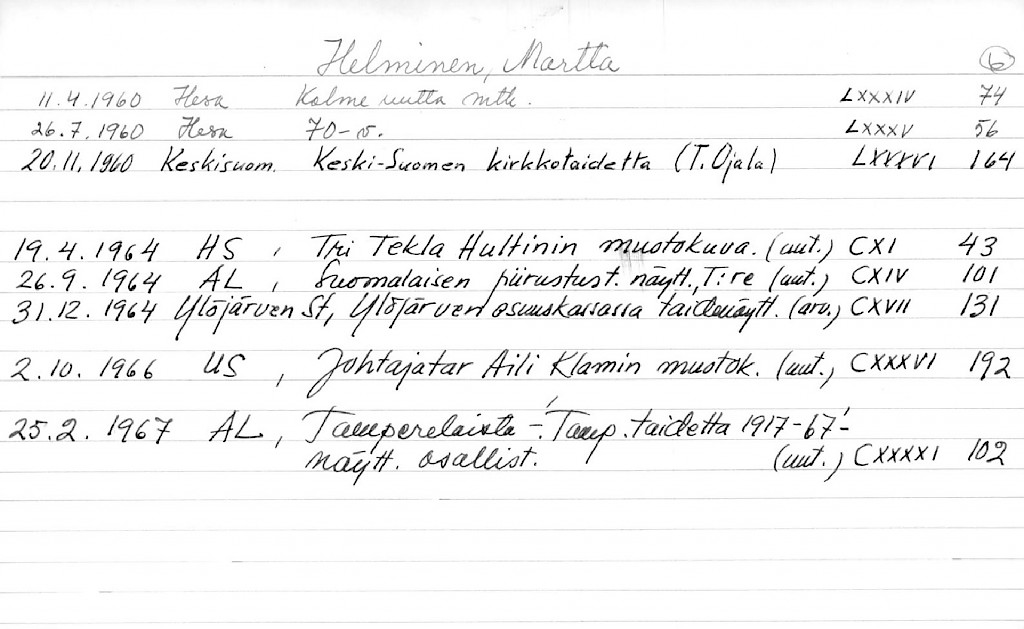 Helminen, Martta 6
11.4.1960 Hesa Kolme uutta mtk. LXXXIV 74
26.7.1960 Hesa 70-v. LXXXV 56
20.11.1960 Keskisuom. Keski-Suomen kirkkotaidetta (T. Ojala) LXXXVI 164
19.4.1964 HS, Tri Tekla Hultinin muotokuva. (uut.) CXI 43
26.9.1964 AL, Suomalaisen piirustust. näytt., T:re (uut.) CXIV 101
31.12.1964 Ylöjärven St, Ylöjärven osuuskassassa taidenäytt. (arv.) CXVII 131
2.10.1966 US, Johtajatar Aili Klamin muotok. (uut.) CXXXVI 192
25.2.1967 AL, Tamperelaista -'Tamp. taidetta 1917-67'-
näytt. osallist. (uut.) CXXXXI 102